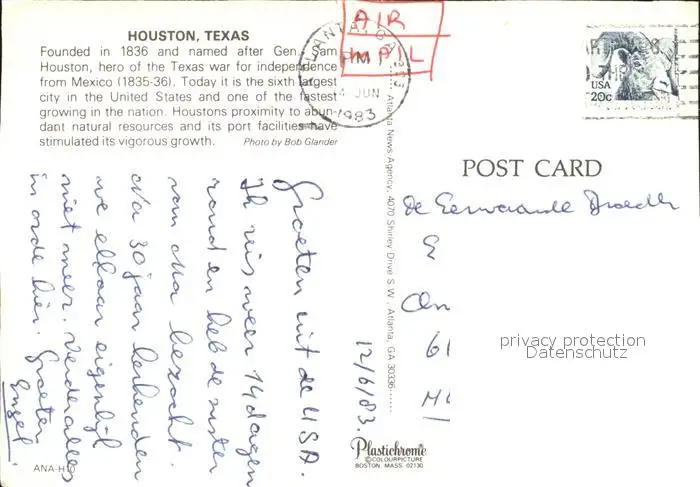 HOUSTON, TEXAS
Founded in 1836 and named after Gen. Sam
Houston, hero of the Texas war for independence
from Mexico (1835-36). Today it is the sixth largest
city in the United States and one of the fastest
growing in the nation. Houstons proximity to abun-
dant natural resources and its port facilities have
stimulated its vigorous growth. Photo by Bob Glander
AIR
PM
4 JUN
1983
USA
20c
Groeten uit de USA.
Ik reis weer 14 dagen
rond en heb de zuster
van Ma bezocht.
Na 30 jaar herkenden
we elkaar eigenlijk
niet meer. Verder alles
in orde hier. Groeten
12/6/83.
Atlanta News Agency, 4070 Shirley Drive S.W., Atlanta, GA 30336
POST CARD
De Eerwaarde Broeder
privacy protection
Datenschutz
Plastichrome
©COLOURPICTURE
BOSTON, MASS 02130